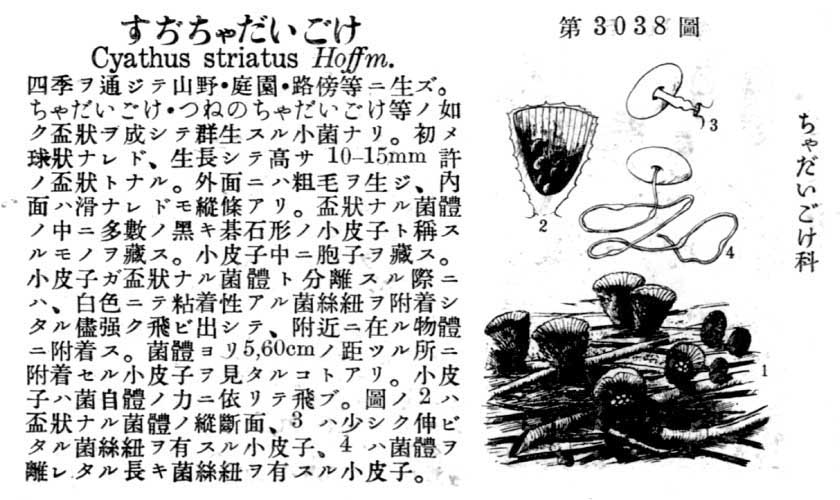 すぢちゃだいごけ
Cyathus striatus Hoffm.
四季ヲ通ジテ山野・庭園・路傍等ニ生ズ。
ちゃだいごけ・つねのちゃだいごけ等ノ如
ク盃狀ヲ成シテ群生スル小菌ナリ。初メ
球狀ナレド、生長シテ高サ 10–15mm 許
ノ盃狀トナル。外面ニハ粗毛ヲ生ジ、内
面ハ滑ナレドモ縱條アリ。盃狀ナル菌體
ノ中ニ多數ノ黑キ碁石形ノ小皮子ト稱ス
ルモノヲ藏ス。小皮子中ニ胞子ヲ藏ス。
小皮子ガ盃狀ナル菌體ト分離スル際ニ
ハ、白色ニテ粘着性アル菌絲紐ヲ附着シ
タル儘强ク飛ビ出シテ、附近ニ在ル物體
ニ附着ス。菌體ヨリ5,60cmノ距ツル所ニ
附着セル小皮子ヲ見タルコトアリ。小皮
子ハ菌自體ノ力ニ依リテ飛ブ。圖ノ2ハ
盃狀ナル菌體ノ縱斷面、3 ハ少シク伸ビ
タル菌絲紐ヲ有スル小皮子、4 ハ菌體ヲ
離レタル長キ菌絲紐ヲ有スル小皮子。
第3038圖
3
2
4
1
ちゃだいごけ科